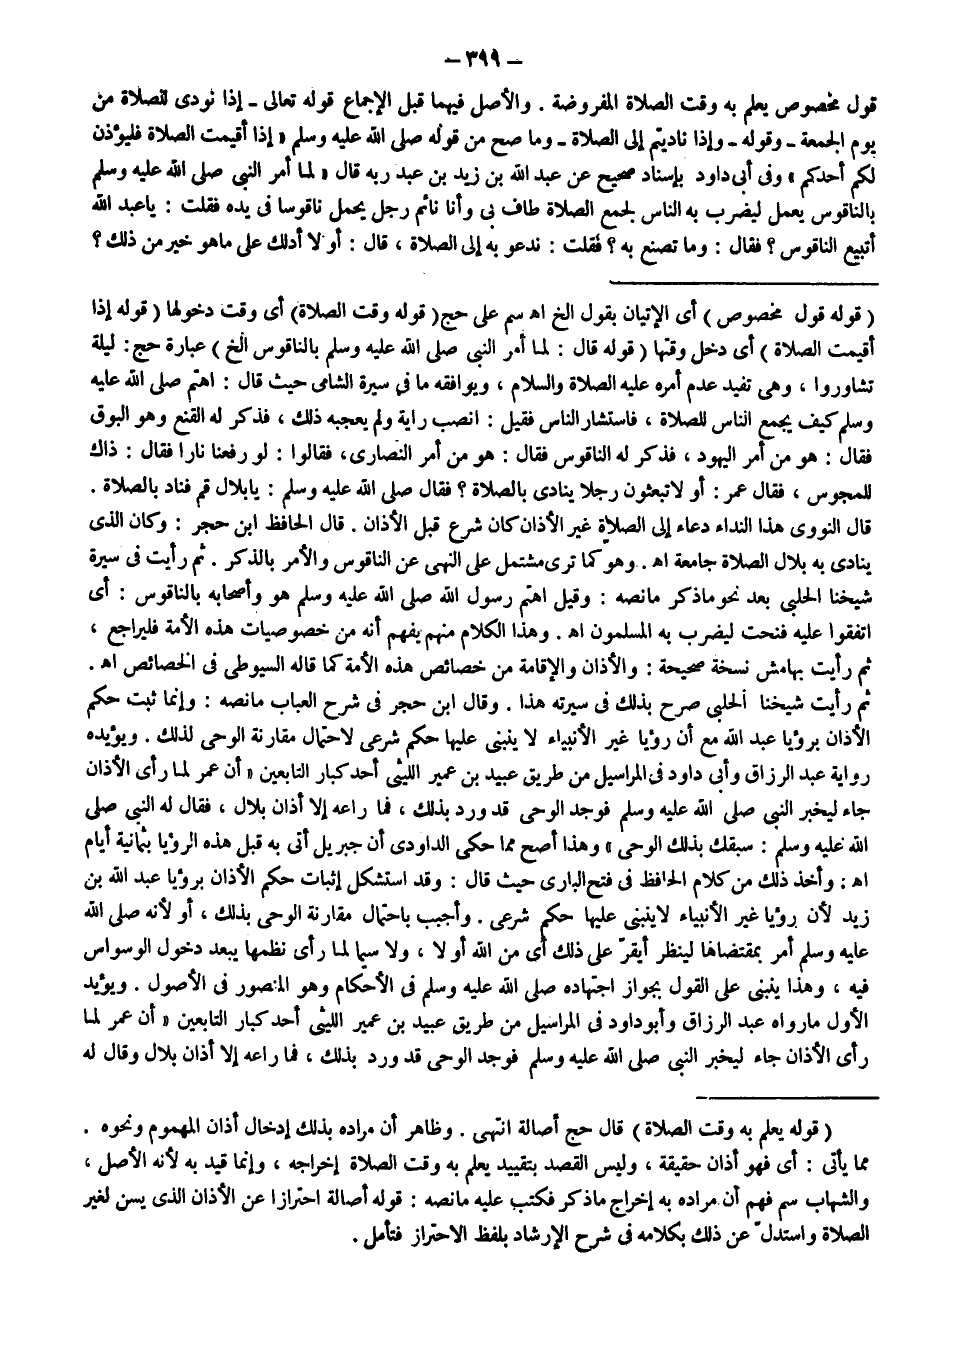 – ٣٩٩ –
قول مخصوص يعلم به وقت الصلاة المفروضة . والأصل فيهما قبل الإجماع قوله تعالى ـ إذا نودى للصلاة من
يوم الجمعة ـ وقوله ـ وإذا ناديتم إلى الصلاة ـ وما صح من قوله صلى الله عليه وسلم « إذا أقيمت الصلاة فليؤذن
لكم أحدكم » وفى أبى داود بإسناد صحيح عن عبد الله بن زيد بن عبد ربه قال « لما أمر النبى صلى الله عليه وسلم
بالناقوس يعمل ليضرب به الناس لجمع الصلاة طاف بى وأنا نائم رجل يحمل ناقوسا فى يده فقلت : ياعبد الله
أتبيع الناقوس ؟ فقال : وما تصنع به ؟ فقلت : ندعو به إلى الصلاة ، قال : أو لا أدلك على ماهو خير من ذلك ؟
( قوله قول مخصوص ) أى الإتيان بقول الخ اهـ سم على حج ( قوله وقت الصلاة ) أى وقت دخولها ( قوله إذا
أقيمت الصلاة ) أى دخل وقتها ( قوله قال : لما أمر النبى صلى الله عليه وسلم بالناقوس الخ ) عبارة حج : ليلة
تشاوروا ، وهى تفيد عدم أمره عليه الصلاة والسلام ، ويوافقه ما فى سيرة الشامى حيث قال : اهتم صلى الله عليه
وسلم كيف يجمع الناس للصلاة ، فاستشار الناس فقيل : انصب راية ولم يعجبه ذلك ، فذكر له القنع وهو البوق
فقال : هو من أمر اليهود ، فذكر له الناقوس فقال : هو من أمر النصارى، فقالوا : لو رفعنا نارا فقال : ذاك
للمجوس ، فقال عمر : أو لا تبعثون رجلا ينادى بالصلاة ؟ فقال صلى الله عليه وسلم : يابلال قم فناد بالصلاة .
قال النووى هذا النداء دعاء إلى الصلاة غير الأذان كان شرع قبل الأذان . قال الحافظ ابن حجر : وكان الذى
ينادى به بلال الصلاة جامعة اهـ . وهو كما ترى مشتمل على النهى عن الناقوس والأمر بالذكر . ثم رأيت فى سيرة
شيخنا الحلبى بعد نحو ماذكر مانصه : وقيل اهتم رسول الله صلى الله عليه وسلم هو وأصحابه بالناقوس : أى
اتفقوا عليه فنحت ليضرب به المسلمون اهـ . وهذا الكلام منهم يفهم أنه من خصوصيات هذه الأمة فليراجع ،
ثم رأيت بهامش نسخة صحيحة : والأذان والإقامة من خصائص هذه الأمة كما قاله السيوطى فى الخصائص اهـ .
ثم رأيت شيخنا الحلبى صرح بذلك فى سيرته هذا . وقال ابن حجر فى شرح العباب مانصه : وإنما ثبت حكم
الأذان برؤيا عبد الله مع أن رؤيا غير الأنبياء لا ينبنى عليها حكم شرعى لاحتمال مقارنة الوحى لذلك . ويؤيده
رواية عبد الرزاق وأبى داود فى المراسيل من طريق عبيد بن عمير الليثى أحد كبار التابعين « أن عمر لما رأى الأذان
جاء ليخبر النبى صلى الله عليه وسلم فوجد الوحى قد ورد بذلك ، فما راعه إلا أذان بلال ، فقال له النبى صلى
الله عليه وسلم : سبقك بذلك الوحى » وهذا أصح مما حكى الداودى أن جبريل أتى به قبل هذه الرؤيا بثمانية أيام
اهـ : وأخذ ذلك من كلام الحافظ فى فتح البارى حيث قال : وقد استشكل إثبات حكم الأذان برؤيا عبد الله بن
زيد لأن رؤيا غير الأنبياء لاينبنى عليها حكم شرعى . وأجيب باحتمال مقارنة الوحى بذلك ، أو لأنه صلى الله
عليه وسلم أمر بمقتضاها لينظر أيقرّ على ذلك أى من الله أو لا ، ولا سيما لما رأى نظمها يبعد دخول الوسواس
فيه ، وهذا ينبنى على القول بجواز اجتهاده صلى الله عليه وسلم فى الأحكام وهو المنصور فى الأصول . ويؤيد
الأول مارواه عبد الرزاق وأبوداود فى المراسيل من طريق عبيد بن عمير الليثى أحد كبار التابعين « أن عمر لما
رأى الأذان جاء ليخبر النبى صلى الله عليه وسلم فوجد الوحى قد ورد بذلك ، فما راعه إلا أذان بلال وقال له
( قوله يعلم به وقت الصلاة ) قال حج أصالة انتهى . وظاهر أن مراده بذلك إدخال أذان المهموم ونحوه .
مما يأتى : أى فهو أذان حقيقة ، وليس القصد بتقييد يعلم به وقت الصلاة إخراجه ، وإنما قيد به لأنه الأصل ،
والشهاب سم فهم أن مراده به إخراج ماذكر فكتب عليه مانصه : قوله أصالة احترازا عن الأذان الذى يسن لغير
الصلاة واستدلّ عن ذلك بكلامه فى شرح الإرشاد بلفظ الاحتراز فتأمل .